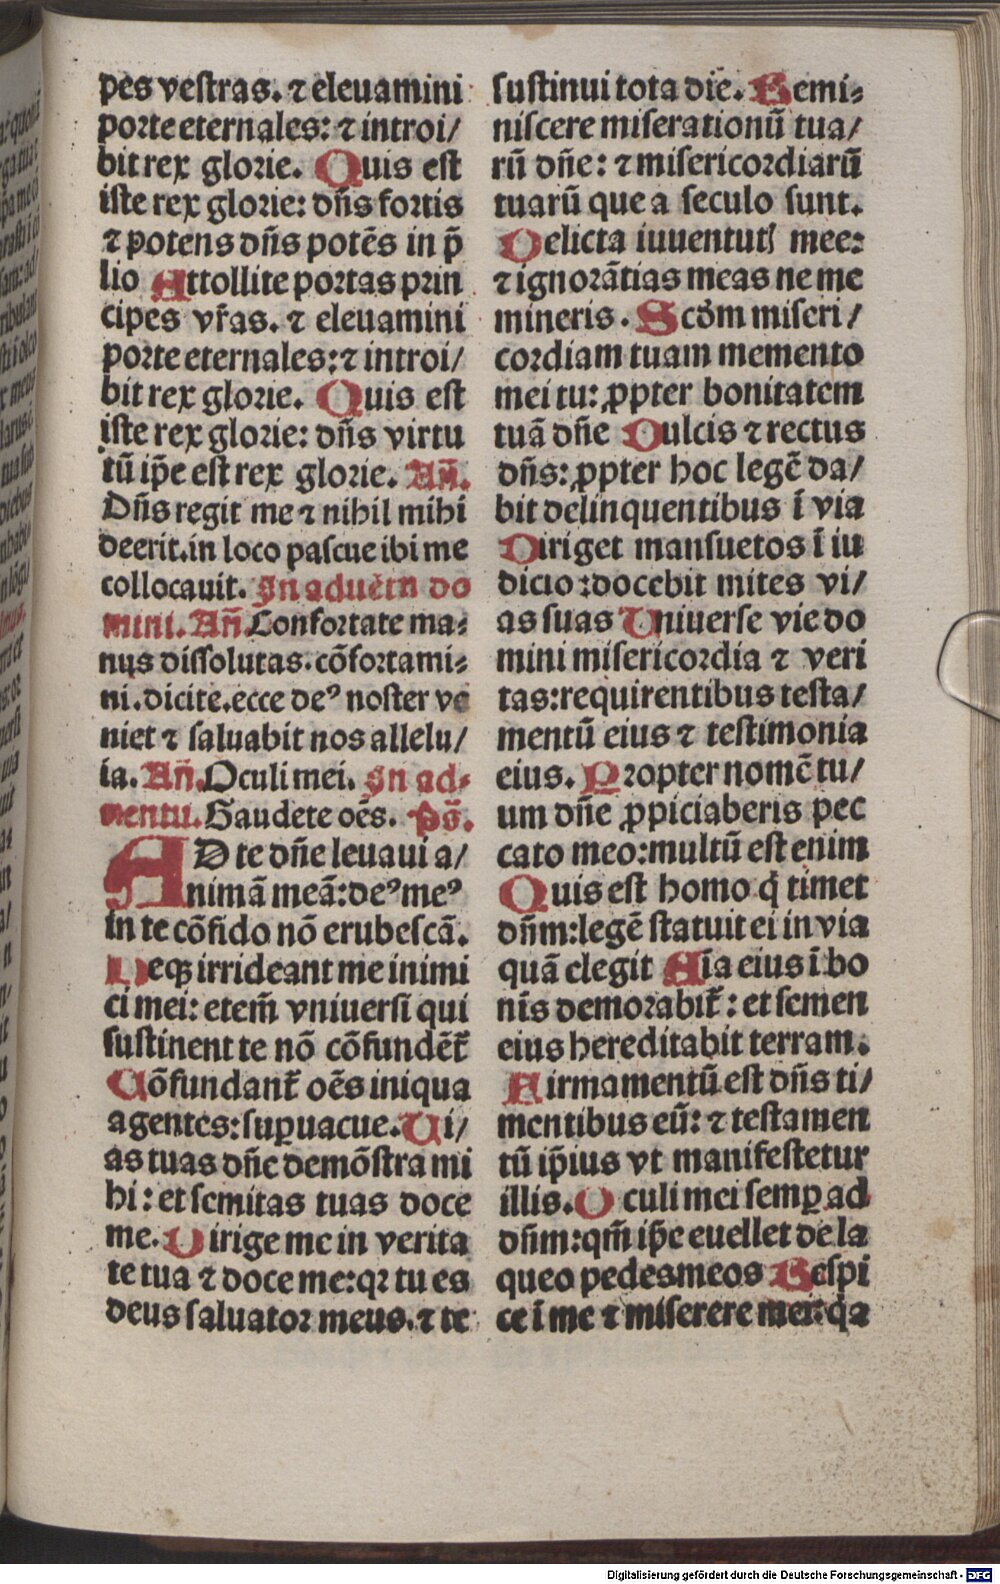 pes vestras. ⁊ eleuamini
porte eternales: ⁊ introi/
bit rex glorie. Quis est
iste rex glorie: dn̄s fortis
⁊ potens dn̄s potēs in p̄
lio Attollite portas prin
cipes vr̄as. ⁊ eleuamini
porte eternales: ⁊ introi/
bit rex glorie. Quis est
iste rex glorie: dn̄s virtu
tū ip̄e est rex glorie. Añ.
Dn̄s regit me ⁊ nihil mihi
deerit. in loco pascue ibi me
collocauit. In aduētu do
mini. Añ. Confortate ma⸗
nus dissolutas. cōfortami⸗
ni. dicite. ecce deꝰ noster ve
niet ⁊ saluabit nos allelu/
ia. Añ. Oculi mei. In ad⸗
uentu. Gaudete oēs. ps̄.
AD te dn̄e leuaui a/
nimā meā: deꝰ meꝰ
in te cōfido nō erubescā.
Neqꝫ irrideant me inimi
ci mei: etem̄ vniuersi qui
sustinent te nō cōfundēt᷑
Cōfundant᷑ oēs iniqua
agentes: suꝑuacue. Ui/
as tuas dn̄e demōstra mi
hi: et semitas tuas doce
me. Dirige me in verita
te tua ⁊ doce me: qꝛ tu es
deus saluator meus. ⁊ te
sustinui tota die. Remi⸗
niscere miserationū tua/
rū dn̄e: ⁊ misericordiarū
tuarū que a seculo sunt.
Delicta iuuentutꝭ mee:
⁊ ignorātias meas ne me
mineris. Scd̄m miseri/
cordiam tuam memento
mei tu: ꝓpter bonitatem
tuā dn̄e Dulcis ⁊ rectus
dn̄s: ꝓpter hoc legē da/
bit delinquentibus ī via
Diriget mansuetos ī iu
dicio: docebit mites vi/
as suas Uniuerse vie do
mini misericordia ⁊ veri
tas: requirentibus testa/
mentū eius ⁊ testimonia
eius. Propter nomē tu/
um dn̄e ꝓpiciaberis pec
cato meo: multū est enim
Quis est homo q̇ timet
dn̄m: legē statuit ei in via
quā elegit Aīa eius ī bo
nīs demorabit᷑: et semen
eius hereditabit terram.
Firmamentū est dn̄s ti/
mentibus eū: ⁊ testamen
tū ip̄ius vt manifestetur
illis. Oculi mei semꝑ ad
dn̄m: qm̄ ip̄e euellet de la
queo pedes meos Respi
ce ī me ⁊ miserere mei: q̇a
Digitalisierung gefördert durch die Deutsche Forschungsgemeinschaft - DFG